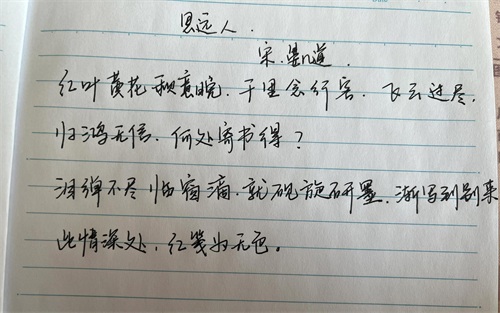 思远人.
宋.晏几道.
红叶黄花秋意晚.千里念行客.飞云过尽.
归鸿无信.何处寄书得?
泪弹不尽临窗滴.就砚旋研墨.渐写到别来
此情深处,红笺为无色。